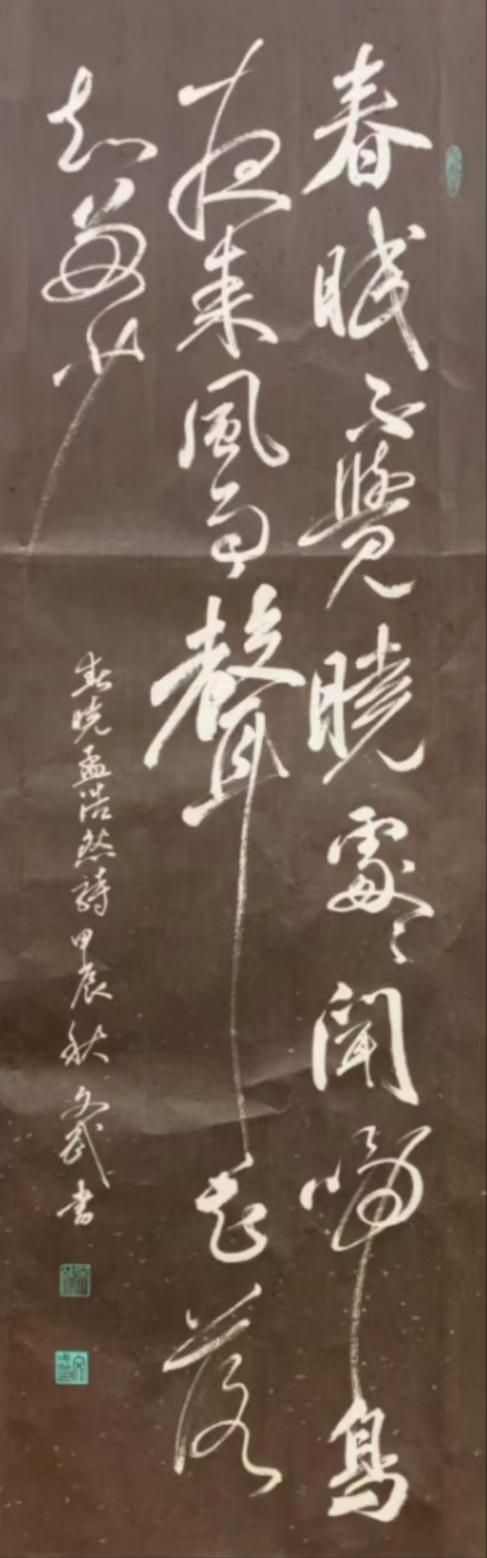 春眠不覺曉處々聞啼鳥
夜来風雨聲花落
知多少
春晓孟浩然詩甲辰秋文武书